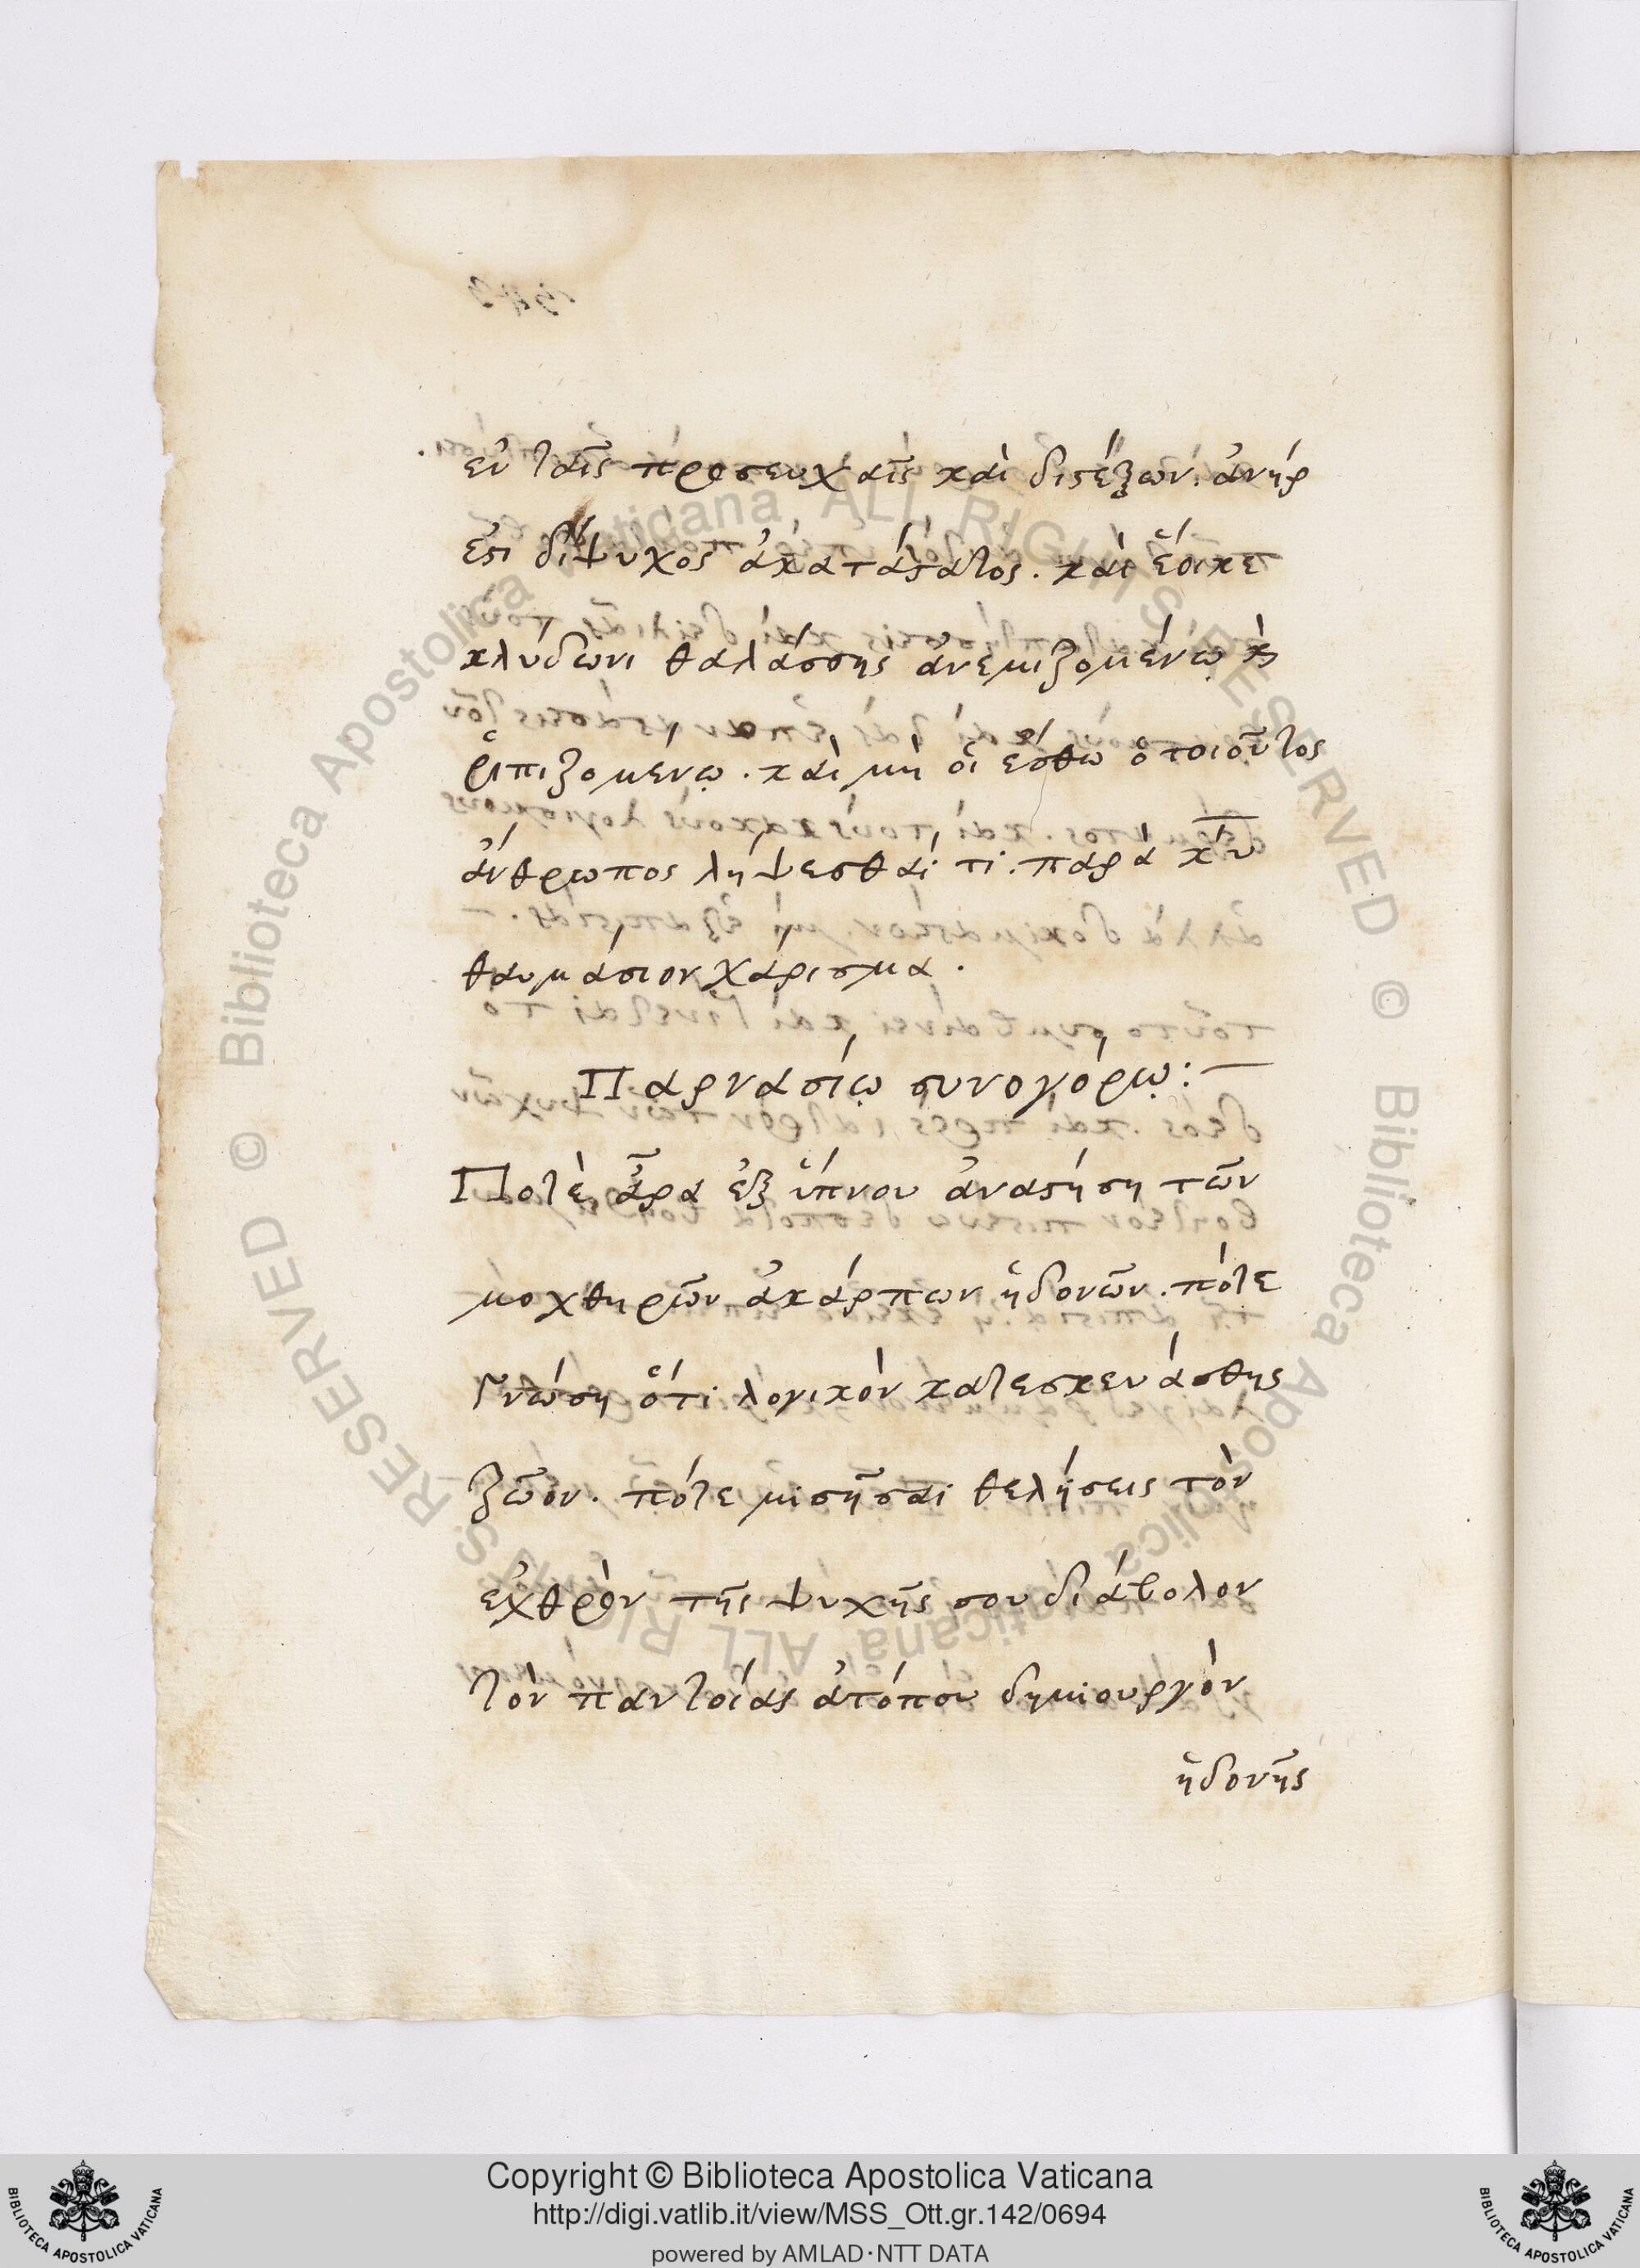 ἐν ταῖς προσευχαῖς καὶ διστάζων. ἀνήρ
ἐστι δίψυχος ἀκατάστατος. καὶ ἔοικε
κλύδωνι θαλάσσης ἀνεμιζομένῳ καὶ
ῥιπιζομένῳ. καὶ μὴ οἰέσθω ὁ τοιοῦτος
ἄνθρωπος λήψεσθαί τι παρὰ κυ
θαυμάσιον χάρισμα.
Παρνασίῳ συνογόρῳ:—
Ποτὲ ἆρα ἐξ ὕπνου ἀναστήσῃ τῶν
μοχθηρῶν ἀκάρπων ἡδονῶν. πότε
γνώσῃ ὅτι λογικὸν κατεσκευάσθης
ζῶον. πότε μισῆσαι θελήσεις τὸν
ἐχθρὸν τῆς ψυχῆς σου διάβολον
τὸν παντοίας ἀτόπου δημιουργὸν
ἡδονῆς
Copyright © Biblioteca Apostolica Vaticana
http://digi.vatlib.it/view/MSS_Ott.gr.142/0694
powered by AMLAD·NTT DATA
BIBLIOTECA APOSTOLICA VATICANA
BIBLIOTECA APOSTOLICA VATICANA
© Biblioteca Apostolica Vaticana ALL RIGHTS RESERVED © Biblioteca Apostolica Vaticana ALL RIGHTS RESERVED